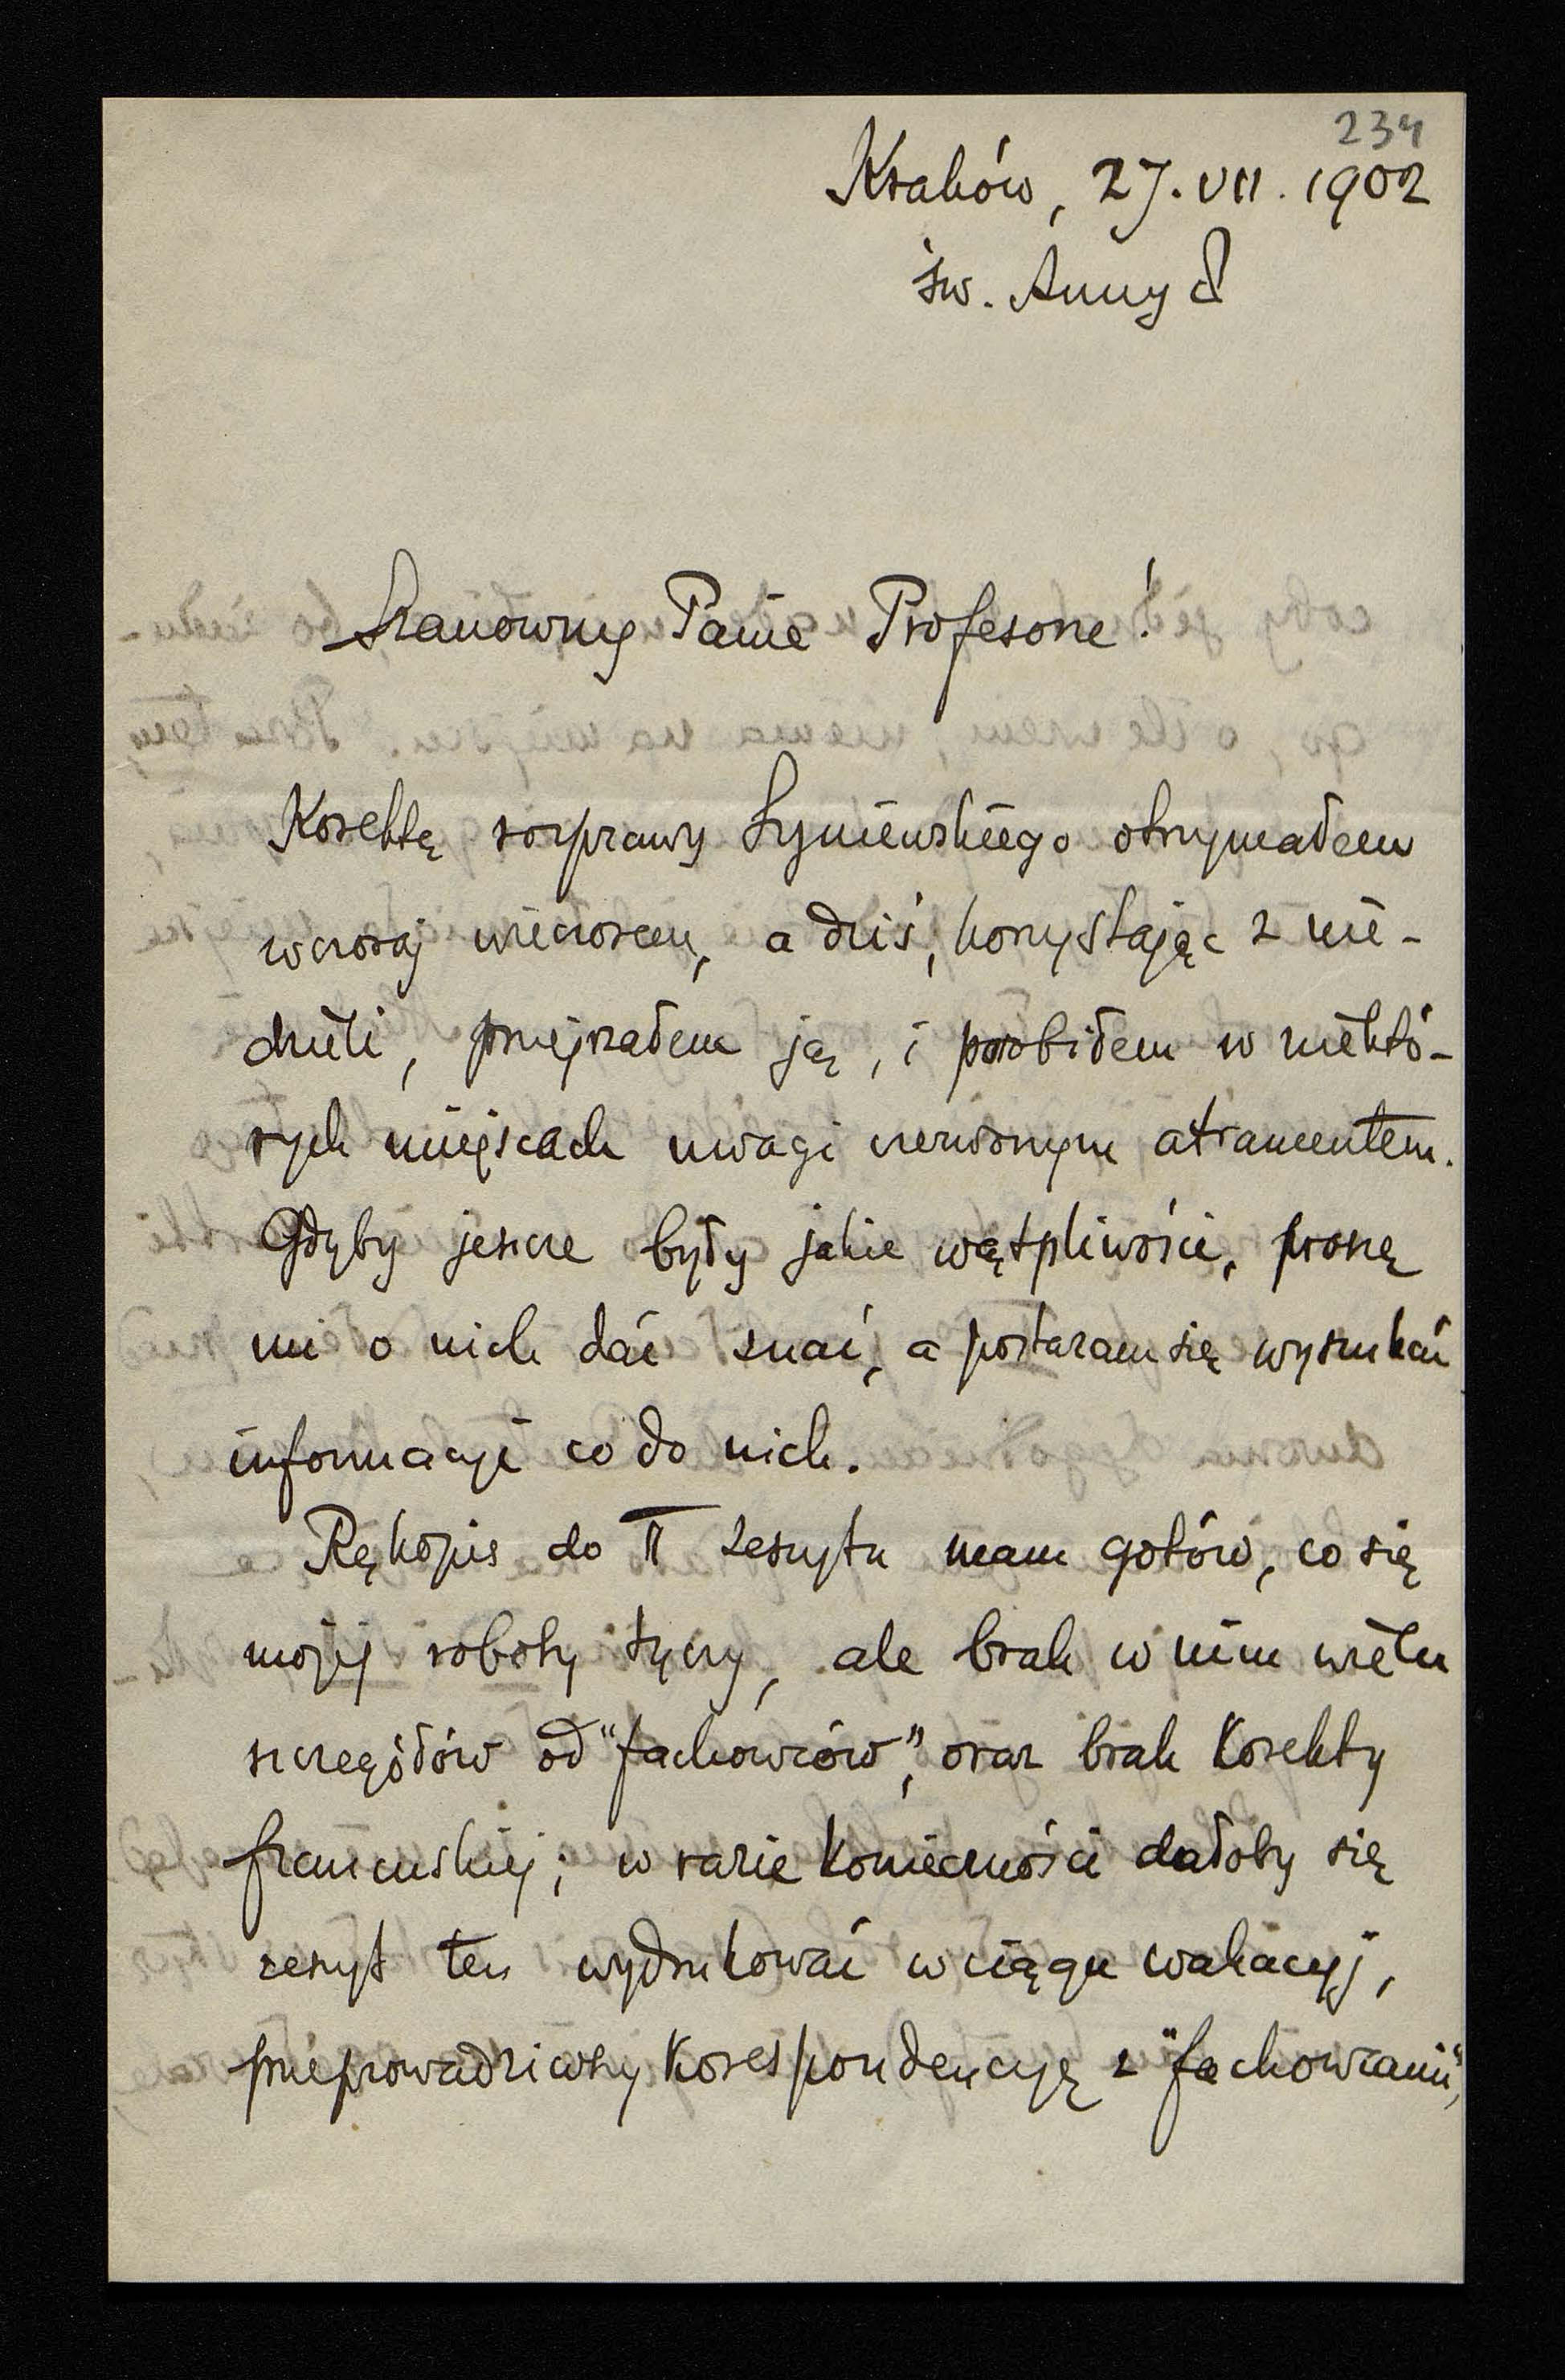 234
Kraków, 27. VII. 1902
św. Anny 8
Szanowny Panie Profesorze!
Korektę rozprawy Łyniewskiego otrzymałem
wczoraj wieczorem, a dziś, korzystając z nie-
dzieli, przejrzałem ją, i porobiłem w niektó-
rych miejscach uwagi czerwonym atramentem.
Gdyby jeszcze były jakie wątpliwości, proszę
mi o nich dać znać, a postaram się wyszukać
informacyi co do nich.
Rękopis do II zeszytu mam gotów, co się
mojej roboty tyczy, ale brak w nim wielu
szczegółów od "fachowców", oraz brak korekty
francuskiej; w razie konieczności dałoby się
zeszyt ten wydrukować w ciągu wakacyj,
przeprowadziwszy korespondencyę z "fachowcami",